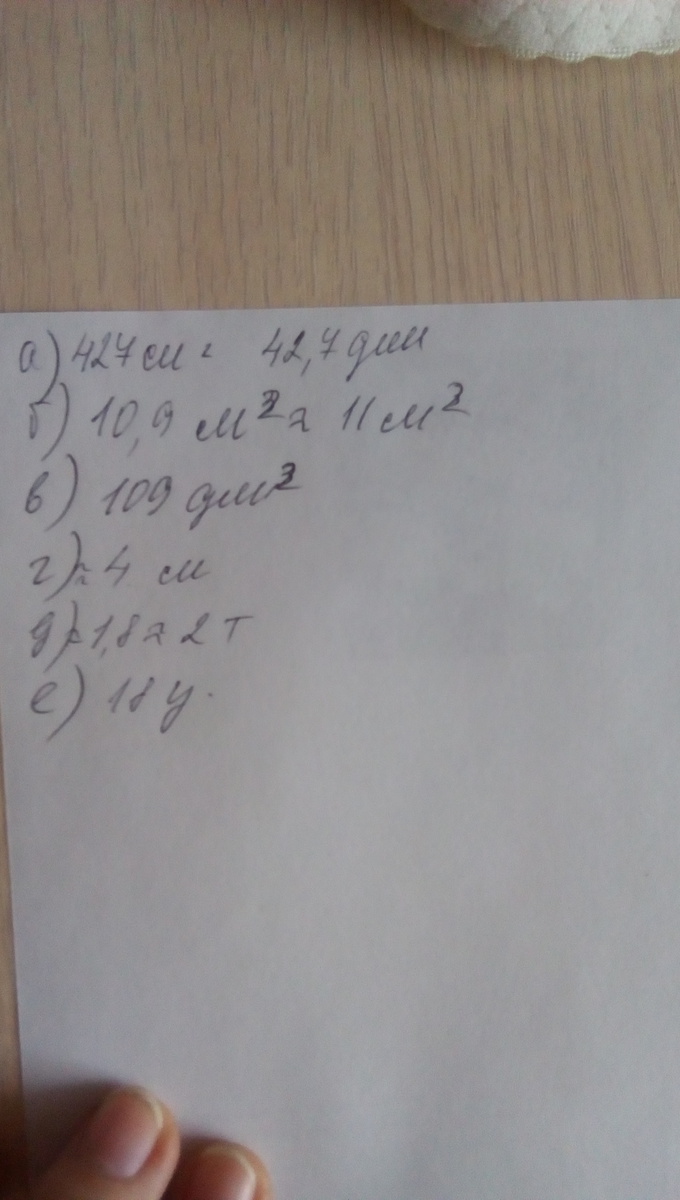 а) 427 см = 42,7 дм
б) 10,9 м² ≈ 11 м²
в) 109 дм²
г) ≈ 4 см
д) ≈ 1,8 ≈ 2 т
е) 18 ц.